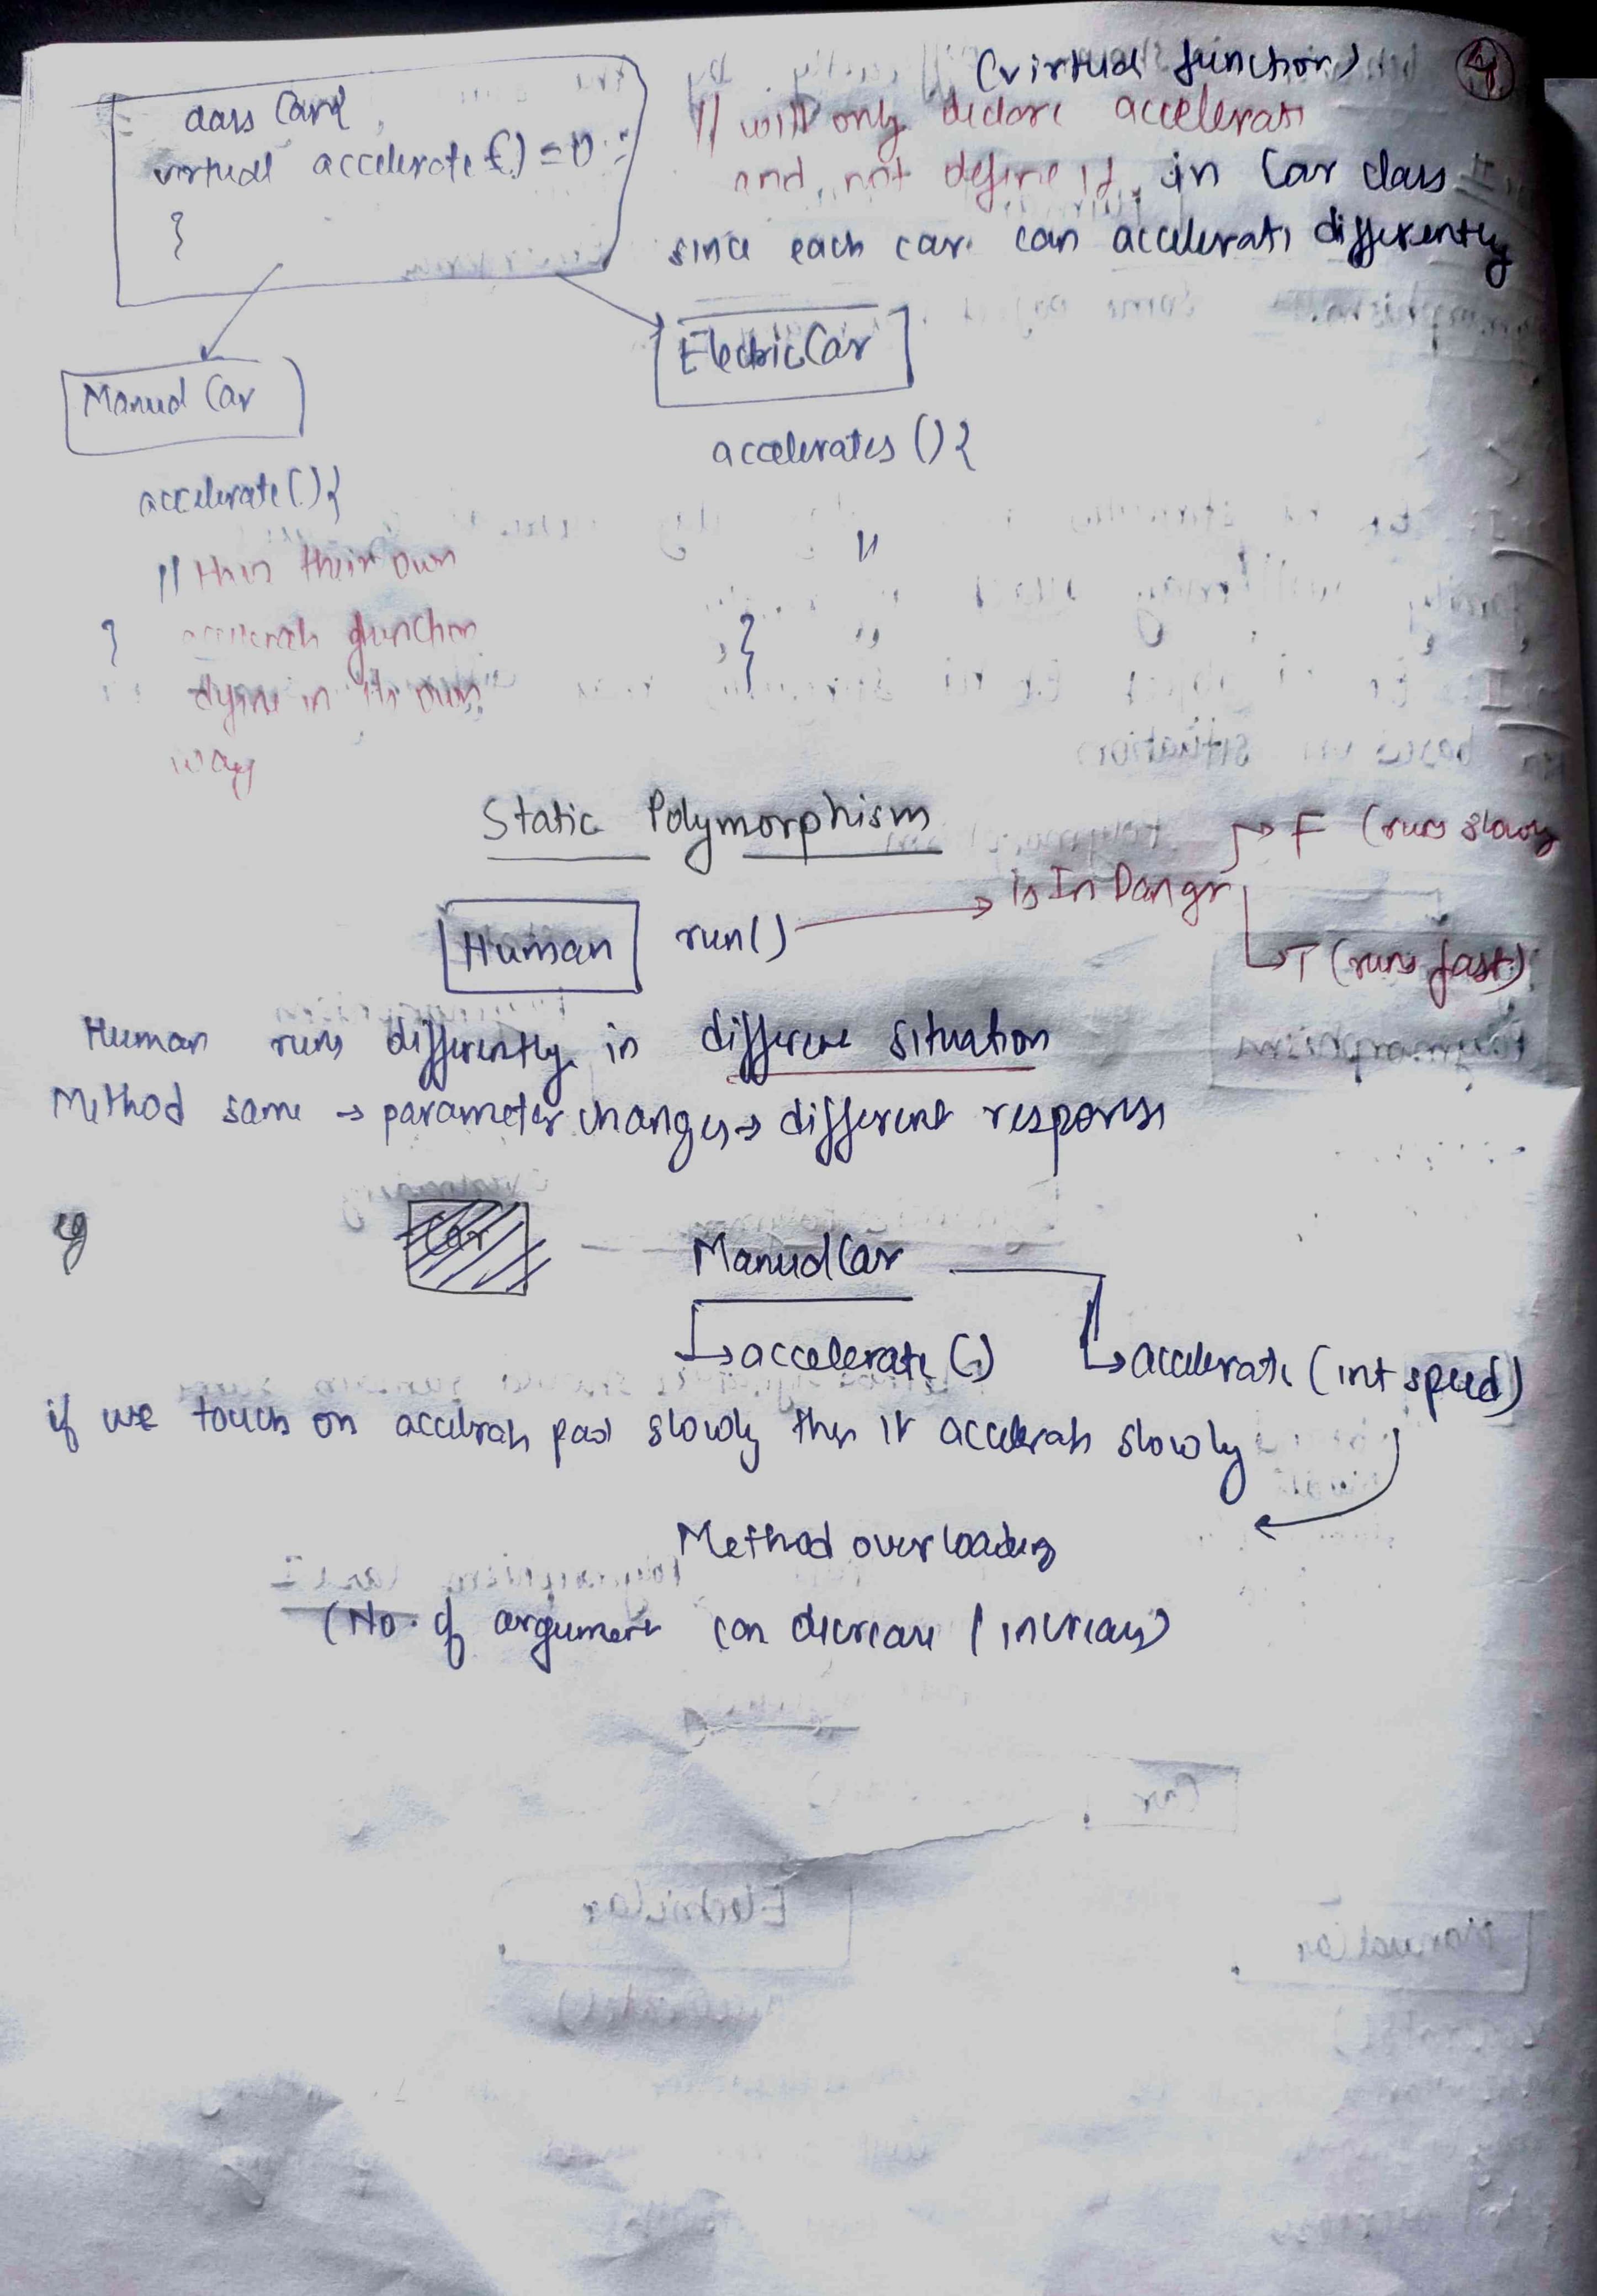 (virtual function)
4
class Car{
virtual accelerate() = 0;
}
// will only declare accelerate
and not define it in Car class
since each car can accelerate differently
Manual Car
ElectricCar
accelerate(){
accelerates(){
// their own
accelerate function
define in its own
way
}
"
}
Static Polymorphism
Human run()
is In Danger
F (runs slowly
T (runs fast)
Human runs differently in different situation
Method same → parameter changes → different response
eg
Car
ManualCar
accelerate()
accelerate (int speed)
if we touch on accelerate pad slowly then it accelerate slowly
Method overloading
(No. of argument can decrease / increase)